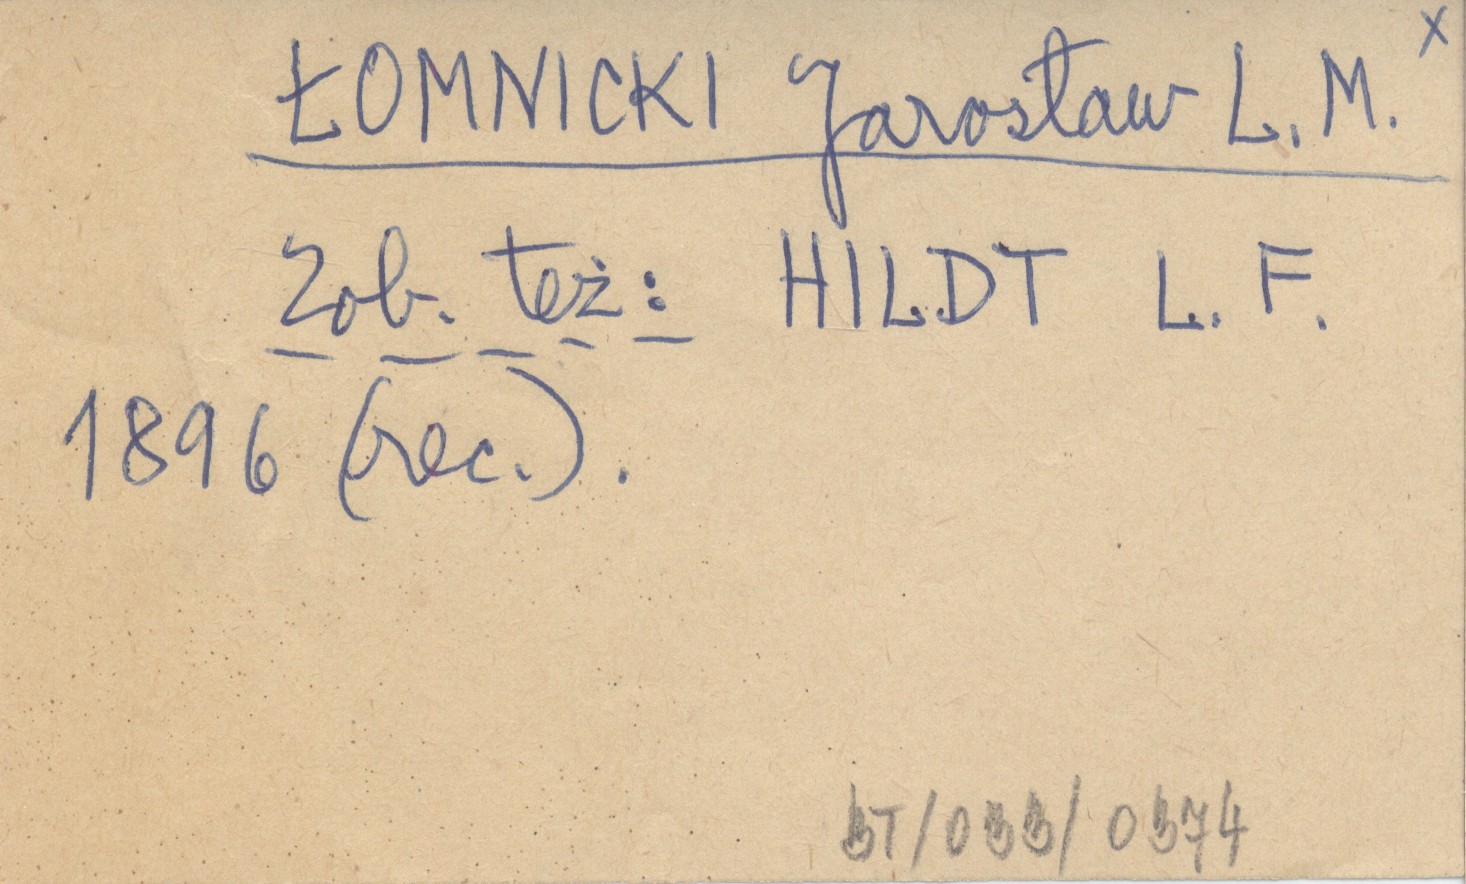 x
ŁOMNICKI Jarosław L. M.
Zob. też: HILDT L. F.
1896 (rec.).
BT/033/0374